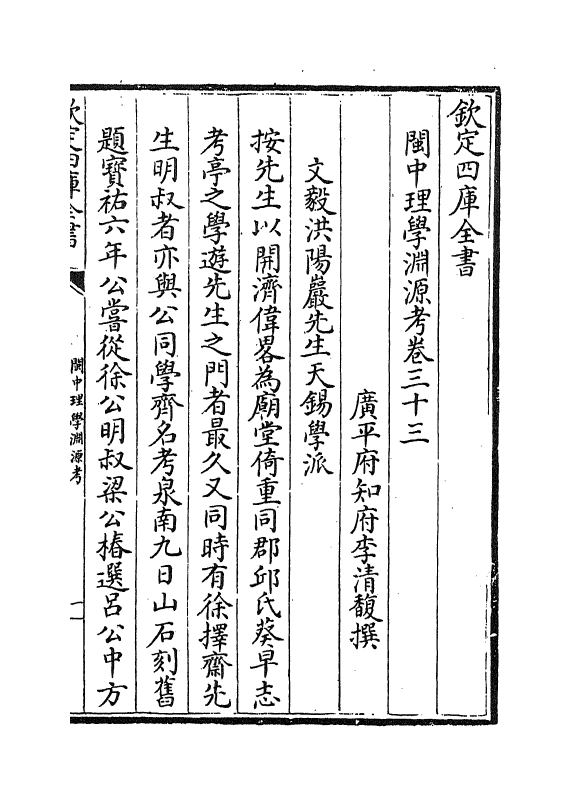 欽定四庫全書
閩中理學淵源考卷三十三
廣平府知府李清馥撰
文毅洪陽巖先生天錫學派
按先生以開濟偉畧為廟堂倚重同郡邱氏葵早志
考亭之學遊先生之門者最久又同時有徐擇齋先
生明叔者亦與公同學齊名考泉南九日山石刻舊
題寶祐六年公嘗從徐公明叔梁公椿選呂公中方
欽定四庫全書
閩中理學淵源考
一